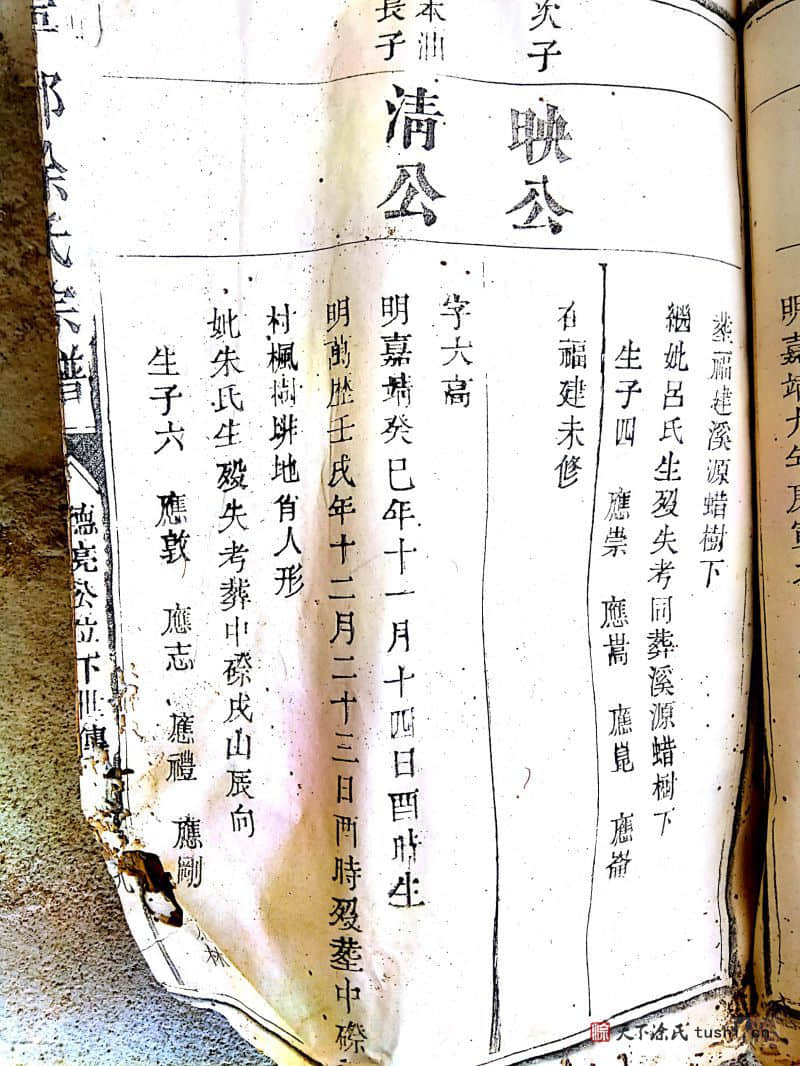 次子
映公
葬福建溪源蜡樹下
繼妣呂氏生歿失考同葬溪源蜡樹下
生子四 應崇 應嵩 應崑 應崙
在福建未修
長子
清公
字六高
明嘉靖癸巳年十一月十四日酉時生
明萬歷壬戌年十二月二十三日酉時歿葬中磜
村楓樹垪地肖人形
妣朱氏生歿失考葬中磜戌山辰向
生子六 應敦 應志 應禮 應剛
林
涂氏宗譜
德亮公位下世傳
天下涂氏 tushi.cn